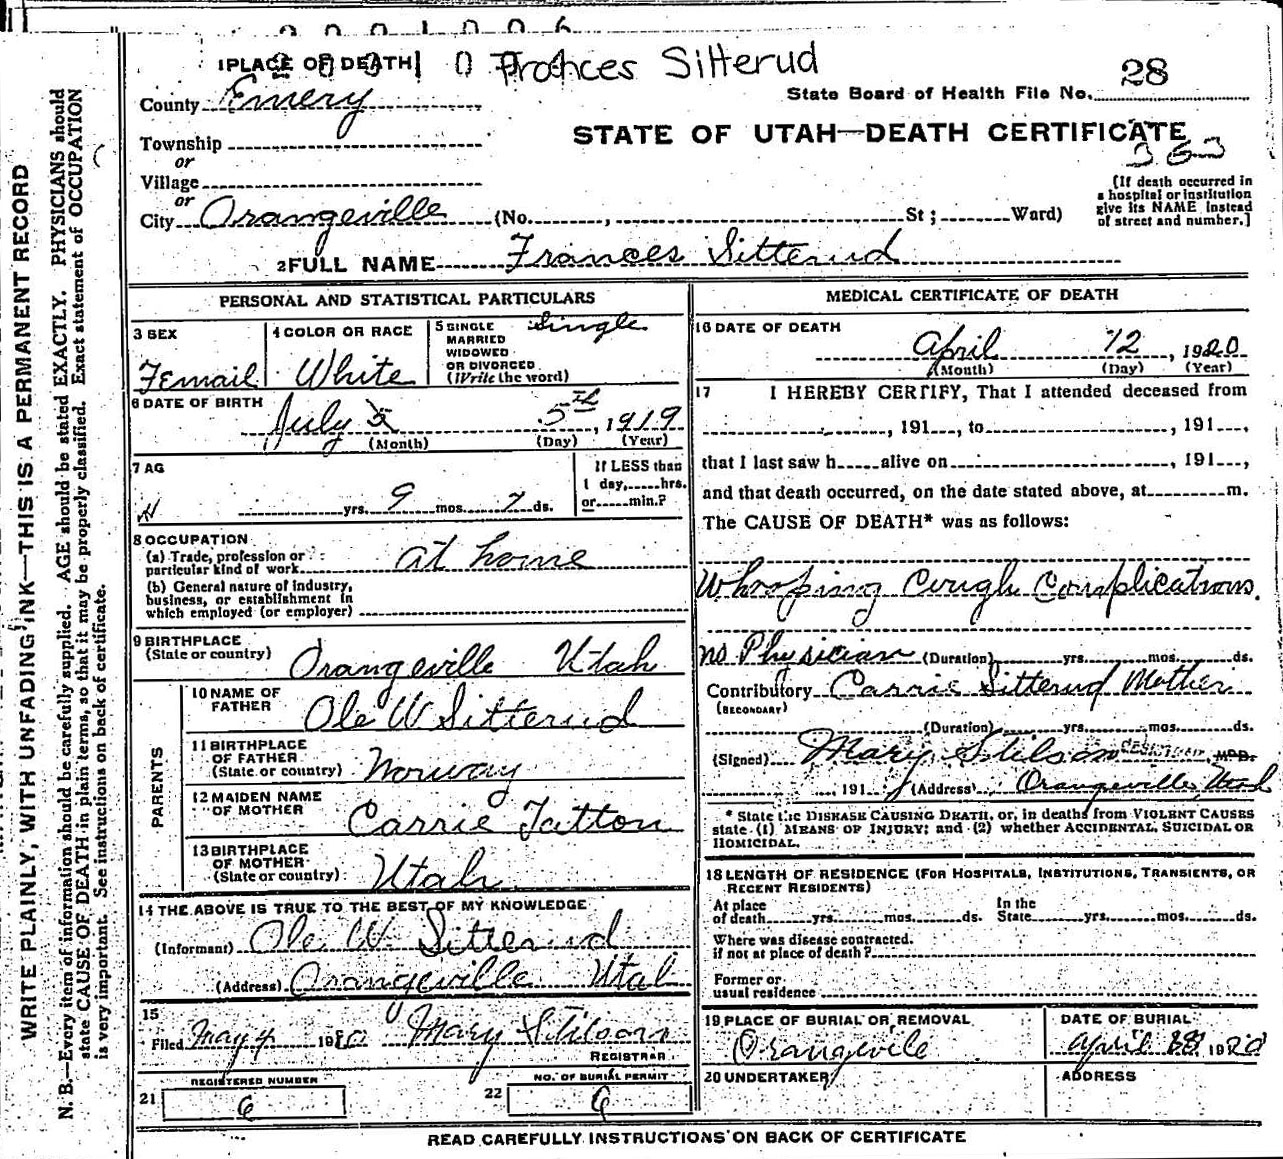 1 PLACE OF DEATH
Frances Sitterud
County Emery
State Board of Health File No. 28
STATE OF UTAH—DEATH CERTIFICATE
363
Township
or
Village
or
City Orangeville (No. , St ; Ward)
[If death occurred in
a hospital or institution
give its NAME instead
of street and number.]
2 FULL NAME Frances Sitterud
PERSONAL AND STATISTICAL PARTICULARS
3 SEX
Femail
4 COLOR OR RACE
White
5 SINGLE
MARRIED
WIDOWED
OR DIVORCED
(Write the word)
Single
6 DATE OF BIRTH
July 5 5th, 1919
(Month) (Day) (Year)
7 AG
yrs. 9 mos. 7 ds.
If LESS than
1 day, hrs.
or min.?
8 OCCUPATION
(a) Trade, profession or
particular kind of work at home
(b) General nature of industry,
business, or establishment in
which employed (or employer)
9 BIRTHPLACE
(State or country) Orangeville Utah
PARENTS
10 NAME OF
FATHER Ole W Sitterud
11 BIRTHPLACE
OF FATHER
(State or country) Norway
12 MAIDEN NAME
OF MOTHER Carrie Tatton
13 BIRTHPLACE
OF MOTHER
(State or country) Utah
14 THE ABOVE IS TRUE TO THE BEST OF MY KNOWLEDGE
(Informant) Ole W. Sitterud
(Address) Orangeville Utah
15
Filed May 4 1920 Mary Stilson
REGISTRAR
REGISTERED NUMBER
21 6
NO. OF BURIAL PERMIT
22 6
MEDICAL CERTIFICATE OF DEATH
16 DATE OF DEATH
April 12, 1920
(Month) (Day) (Year)
17 I HEREBY CERTIFY, That I attended deceased from
, 191 , to , 191 ,
that I last saw h alive on , 191 ,
and that death occurred, on the date stated above, at m.
The CAUSE OF DEATH* was as follows:
Whooping Cough Complications.
no Physician (Duration) yrs. mos. ds.
Contributory Carrie Sitterud Mother
(SECONDARY)
(Duration) yrs. mos. ds.
(Signed) Mary Stilson M.D.
, 191 (Address) Orangeville, Utah
* State the DISEASE CAUSING DEATH, or, in deaths from VIOLENT CAUSES
state (1) MEANS OF INJURY; and (2) whether ACCIDENTAL, SUICIDAL OR
HOMICIDAL.
18 LENGTH OF RESIDENCE (FOR HOSPITALS, INSTITUTIONS, TRANSIENTS, OR
RECENT RESIDENTS)
At place
of death yrs. mos. ds.
In the
State yrs. mos. ds.
Where was disease contracted.
if not at place of death?
Former or
usual residence
19 PLACE OF BURIAL OR REMOVAL
Orangevile
DATE OF BURIAL
April 1920
20 UNDERTAKER
ADDRESS
READ CAREFULLY INSTRUCTIONS ON BACK OF CERTIFICATE
WRITE PLAINLY, WITH UNFADING INK—THIS IS A PERMANENT RECORD
N. B.—Every item of information should be carefully supplied. AGE should be stated EXACTLY. PHYSICIANS should
state CAUSE OF DEATH in plain terms, so that it may be properly classified. Exact statement of OCCUPATION
is very important. See instructions on back of certificate.